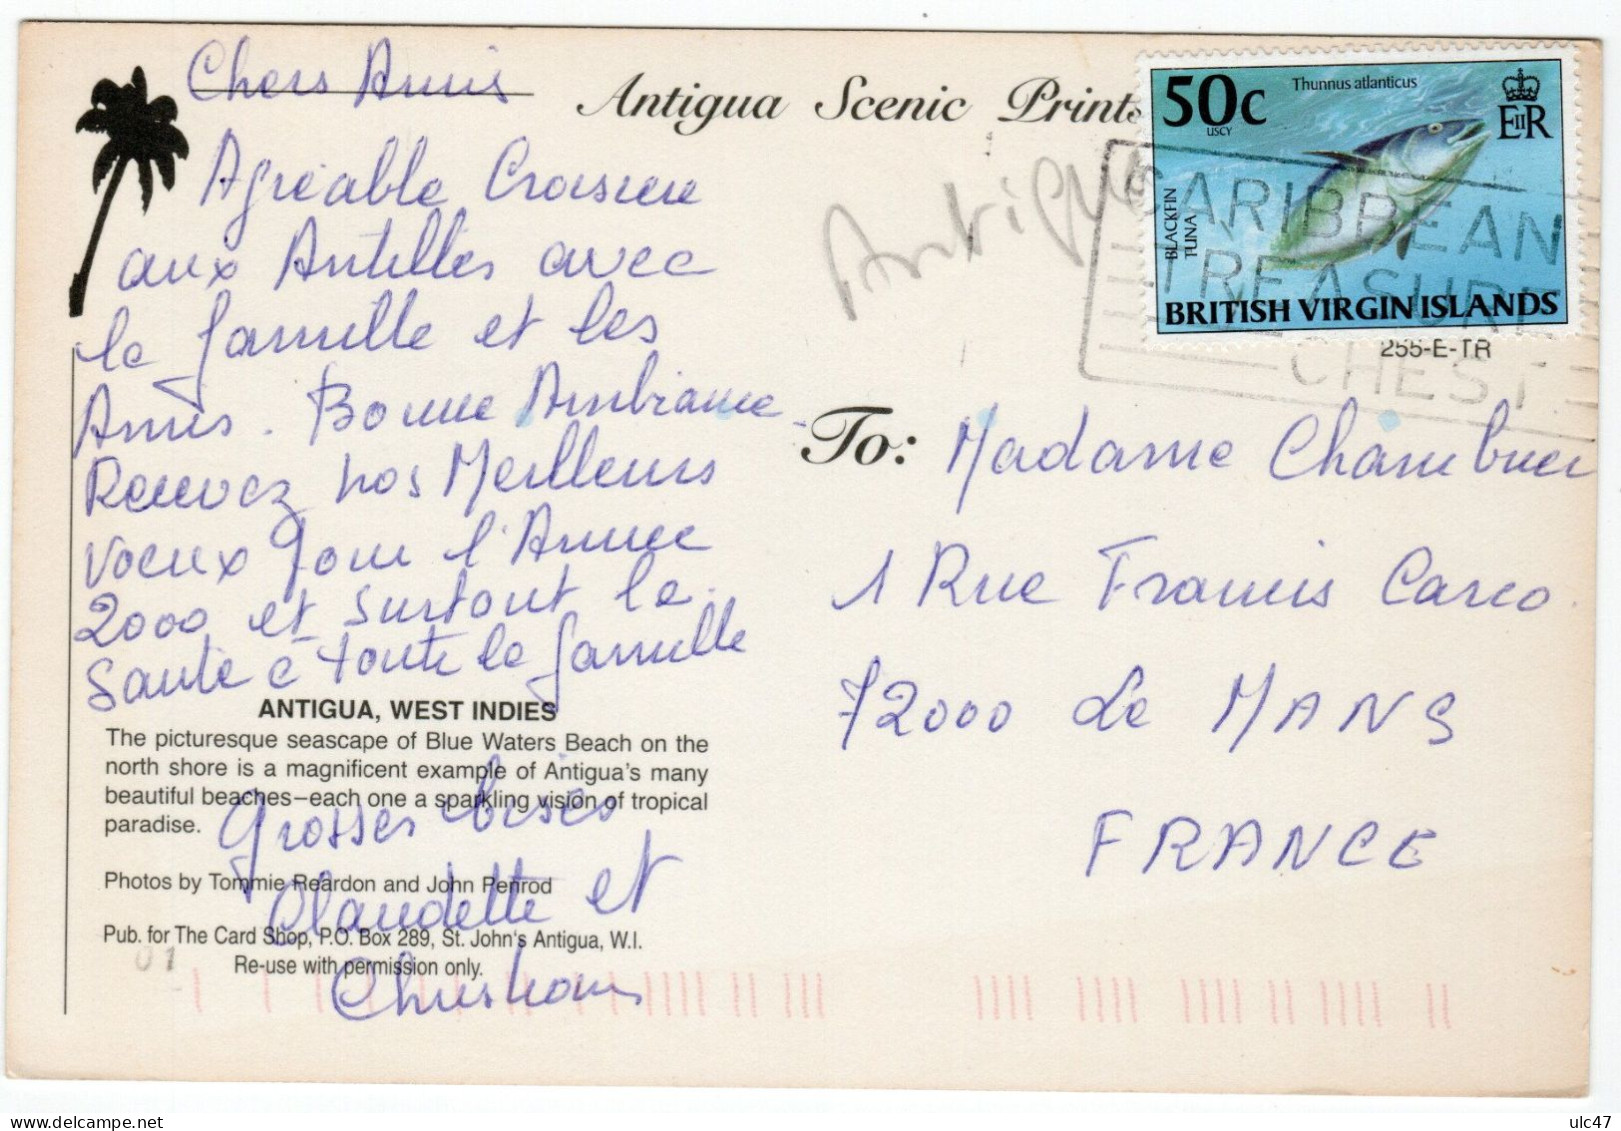 Chers Amis
Agréable Croisiere
aux Antilles avec
la famille et les
Amis. Bonne Ambiance
Recevez nos Meilleurs
voeux pour l'Annee
2000 et surtout la
Santé a toute la famille
Grosses bises
Claudette et
Christian
ANTIGUA, WEST INDIES
The picturesque seascape of Blue Waters Beach on the
north shore is a magnificent example of Antigua's many
beautiful beaches–each one a sparkling vision of tropical
paradise.
Photos by Tommie Reardon and John Penrod
Pub. for The Card Shop, P.O. Box 289, St. John's Antigua, W.I.
Re-use with permission only.
01
Antigua Scenic Prints
Antigua
50c
USCY
Thunnus atlanticus
EIIR
BLACKFIN
TUNA
BRITISH VIRGIN ISLANDS
CARIBBEAN
TREASURE
CHEST
255-E-TR
To: Madame
1 Rue Francis Carco.
72000 Le MANS
FRANCE
delcampe.net
ulc47